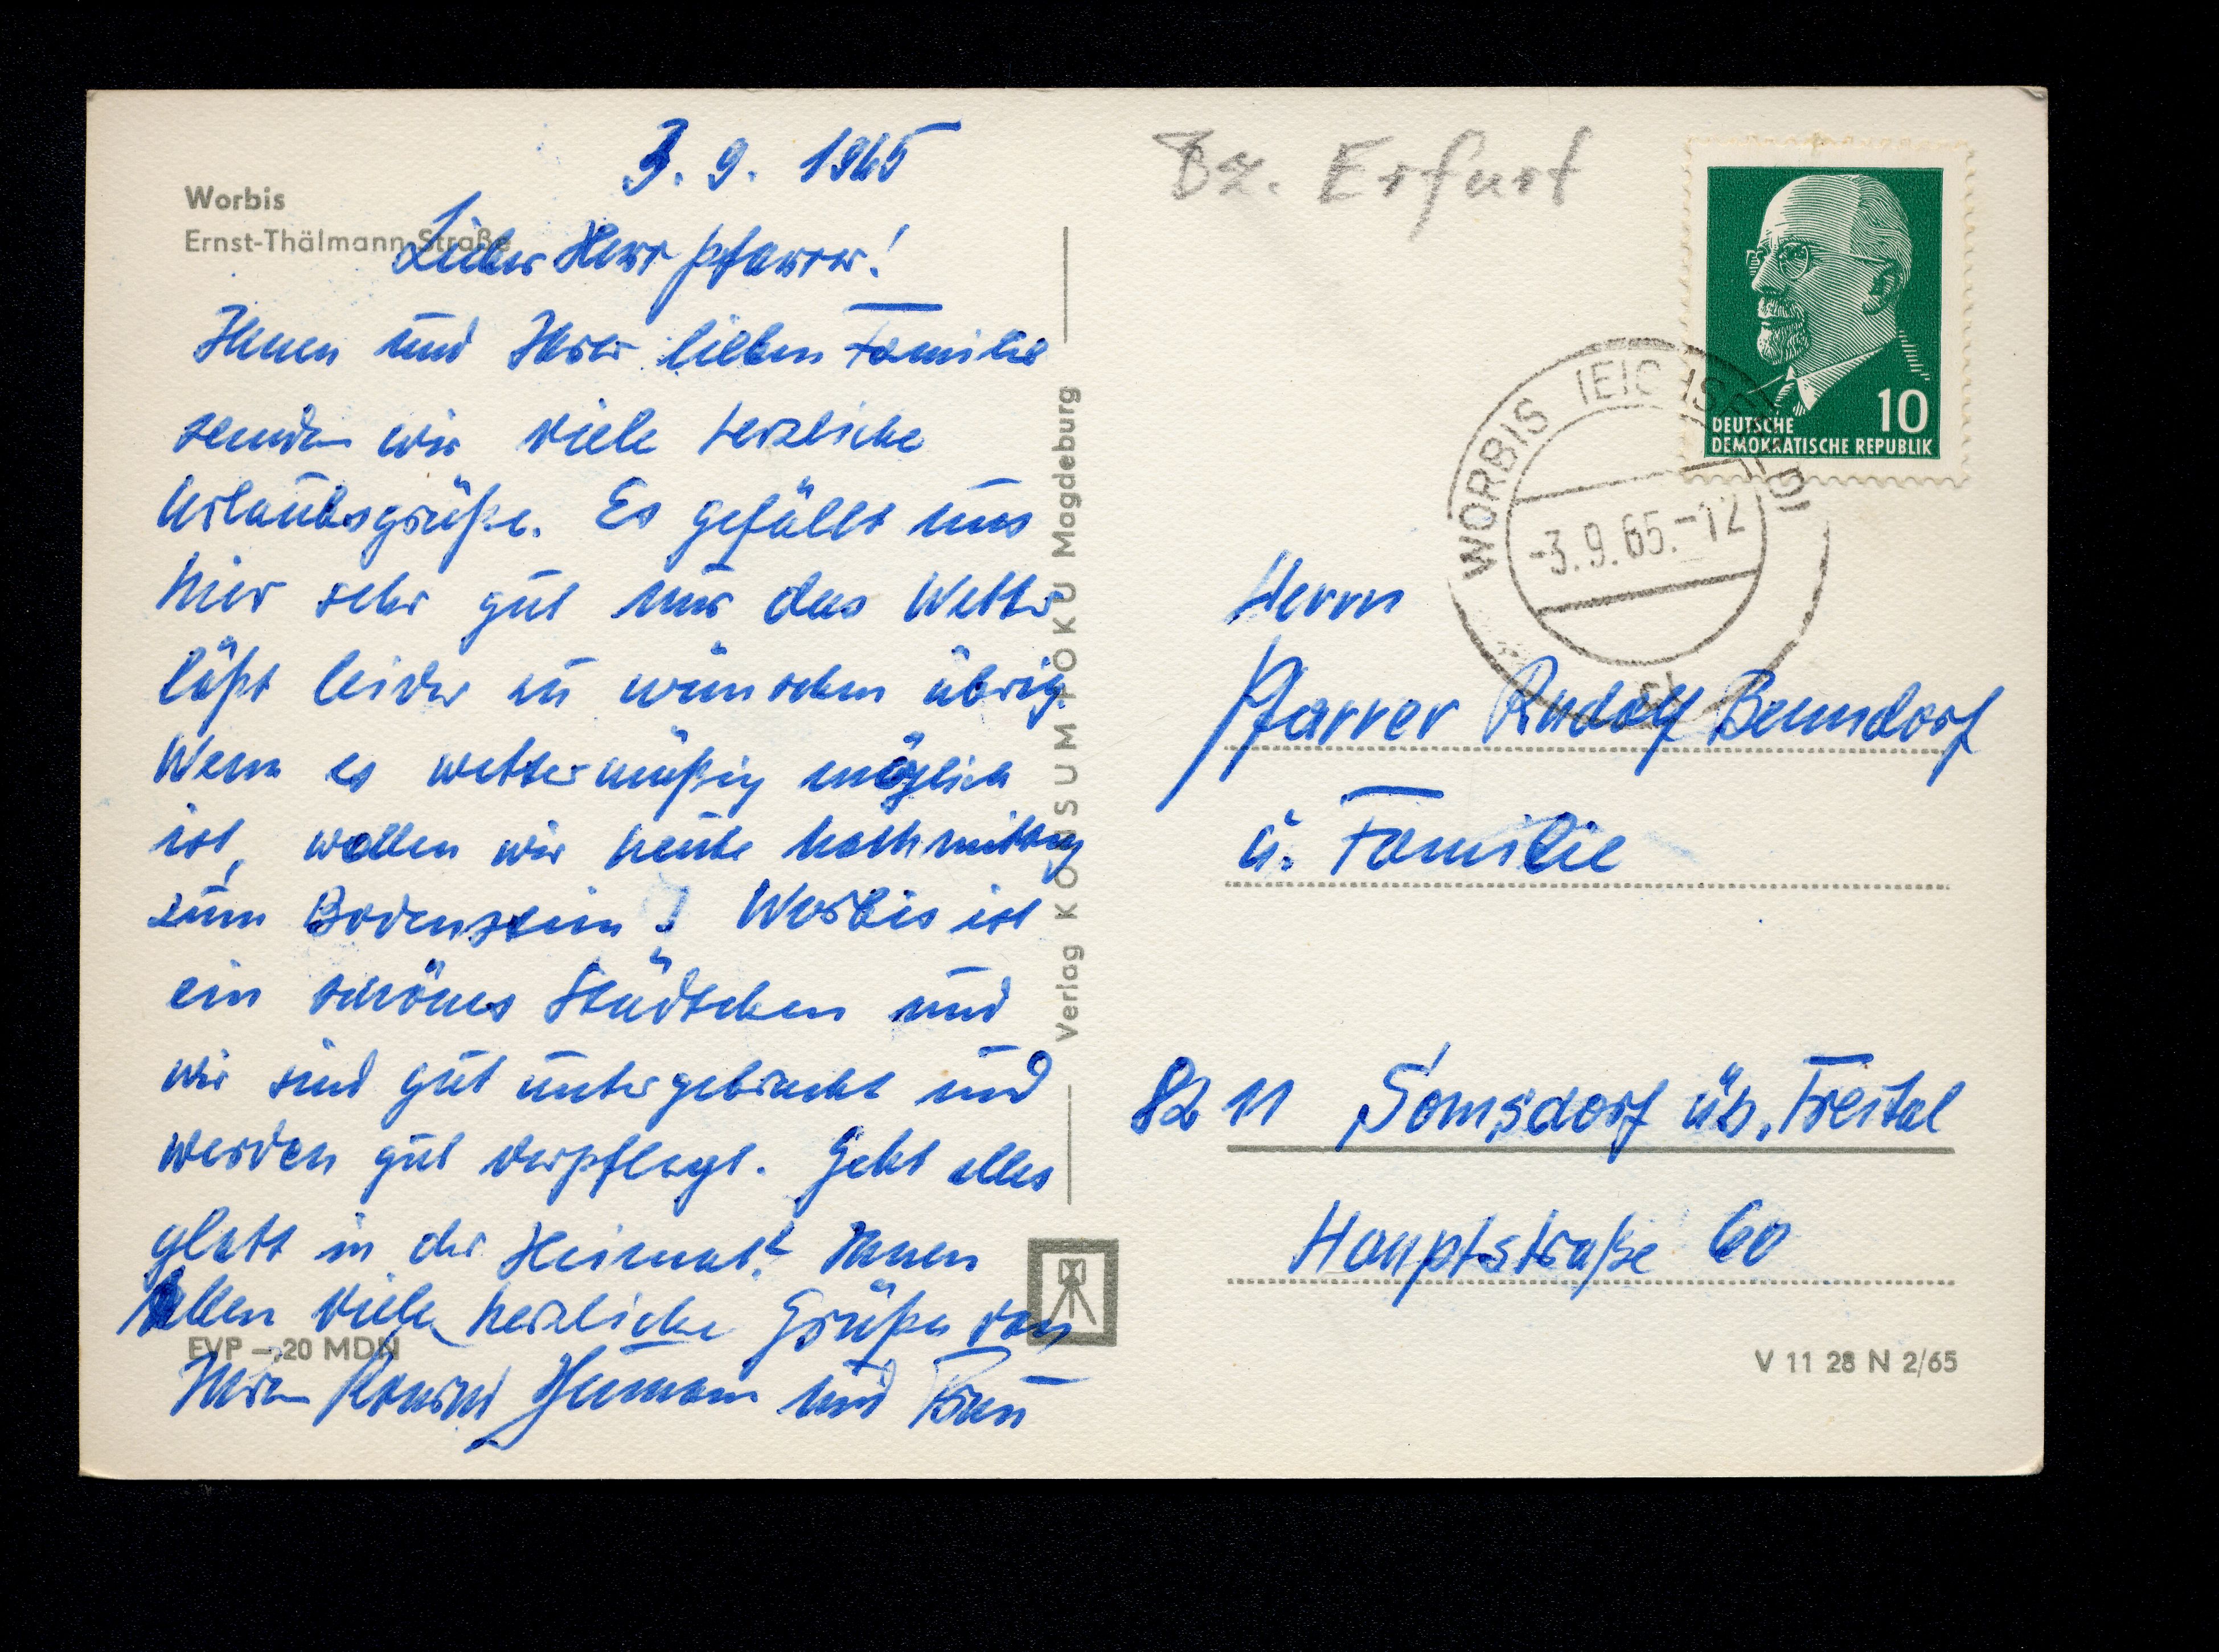 3. 9. 1965
Worbis
Ernst-Thälmann-Straße
Lieber Herr Pfarrer!
Ihnen und Ihrer lieben Familie
senden wir viele herzliche
Urlaubsgrüße. Es gefällt uns
hier sehr gut nur das Wetter
läßt leider zu wünschen übrig.
Wenn es wettermäßig möglich
ist, wollen wir heute Nachmittag
zum Bodenstein! Worbis ist
ein schönes Städtchen und
wir sind gut untergebracht und
werden gut verpflegt. Geht alles
glatt in der Heimat? Ihnen
allen viele herzliche Grüße von
EVP –,20 MDN
Ihrem und Frau
Verlag KONSUM FOKU Magdeburg
Bz. Erfurt
10
DEUTSCHE
DEMOKRATISCHE REPUBLIK
WORBIS (EICHSFELD)
-3.9.65.-12
Herrn
Pfarrer Rudolf Benndorf
u. Familie
8211 Somsdorf üb. Freital
Hauptstraße 60
V 11 28 N 2/65